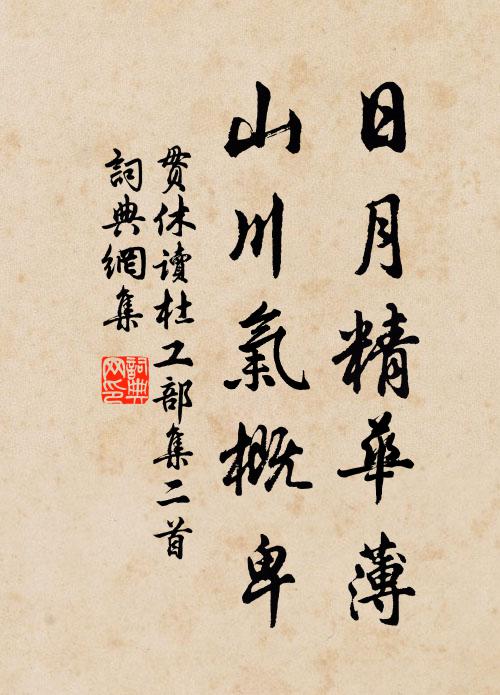 日月精華薄
山川氣概卑
貫休讀杜工部集二首
詞典網集
詞典網印